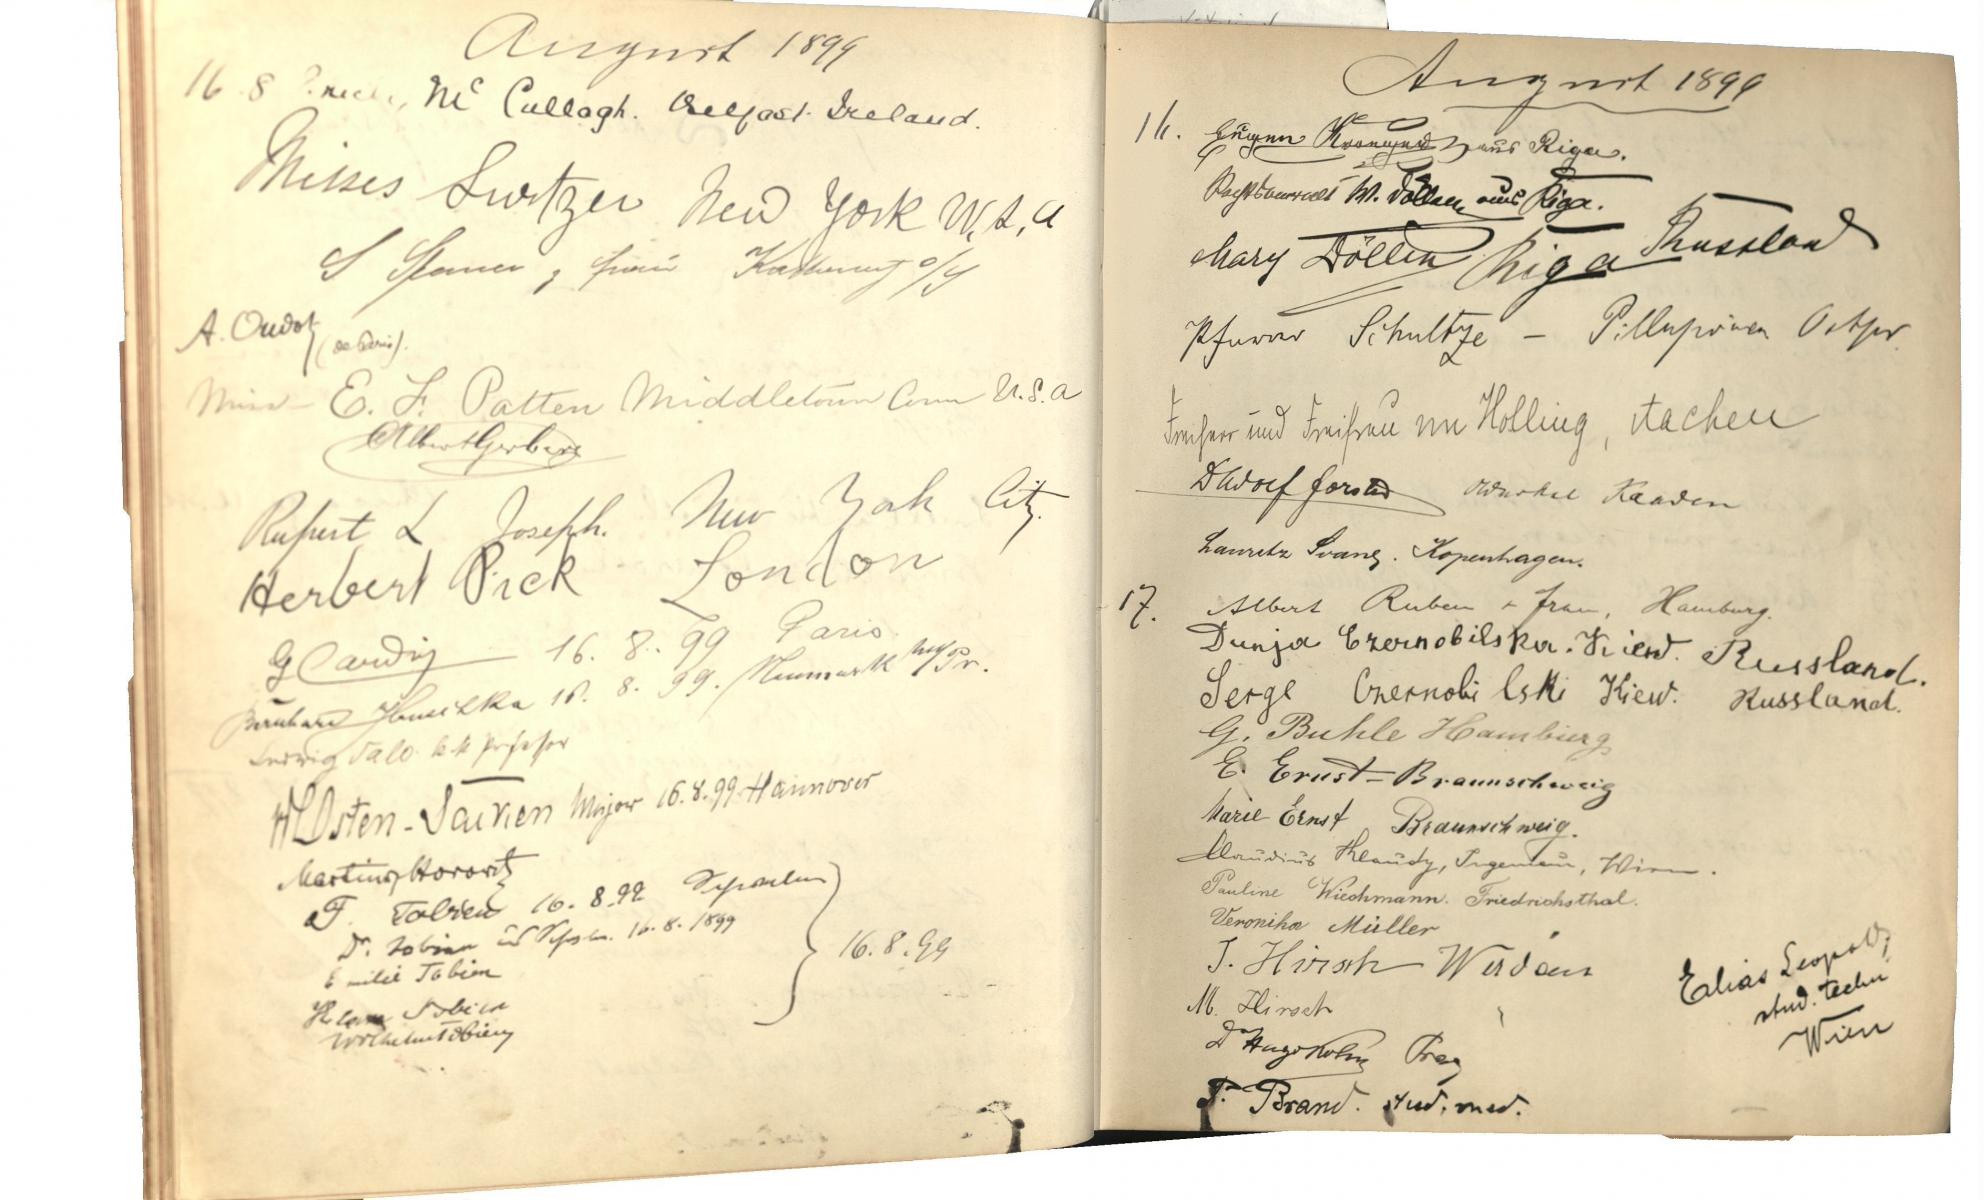 August 1899
16. 8 Mc Cullagh. Belfast. Ireland.
Misses Switzer New York U.S.A
S Steiner & Frau
A. Oudot
(de Paris).
Miss E. F. Patten Middletown Conn U.S.A
Albert Gerbers
Rupert L Joseph. New York City.
Herbert Pick London
16. 8. 99 Paris
Bernhard 16. 8. 99. Neumark W/Pr.
Ludwig k k Professor
Osten-Sacken Major 16.8.99 Hannover
Martin Horovitz
F. Tobien 16. 8. 99
Dr. Tobien 16.8.1899
Emilie Tobien
16.8.99
Tobien
Wilhelm Tobien
August 1899
16. Eugen aus Riga.
Rechtsanwalt W. Döllen aus Riga.
Mary Döllen Riga Russland
Pfarrer Schultze - Pillupönen Ostpr.
Freiherr und Freifrau von Holling, Aachen
Kaaden
Lauritz Svane. Kopenhagen.
17. Albert Ruben + Frau, Hamburg.
Dunja Czernobilska. Kiew. Russland.
Serge Czernobilski Kiew. Russland.
G. Buhle Hamburg
E. Ernst - Braunschweig
Marie Ernst Braunschweig.
Claudius Klaudy, Ingenieur, Wien.
Pauline Wiechmann. Friedrichsthal.
Veronika Müller
J. Hirsch Werden
M. Hirsch
Dr Hugo Kohn Prag
P. Brand. stud. med.
Elias Leopold,
stud. techn
Wien